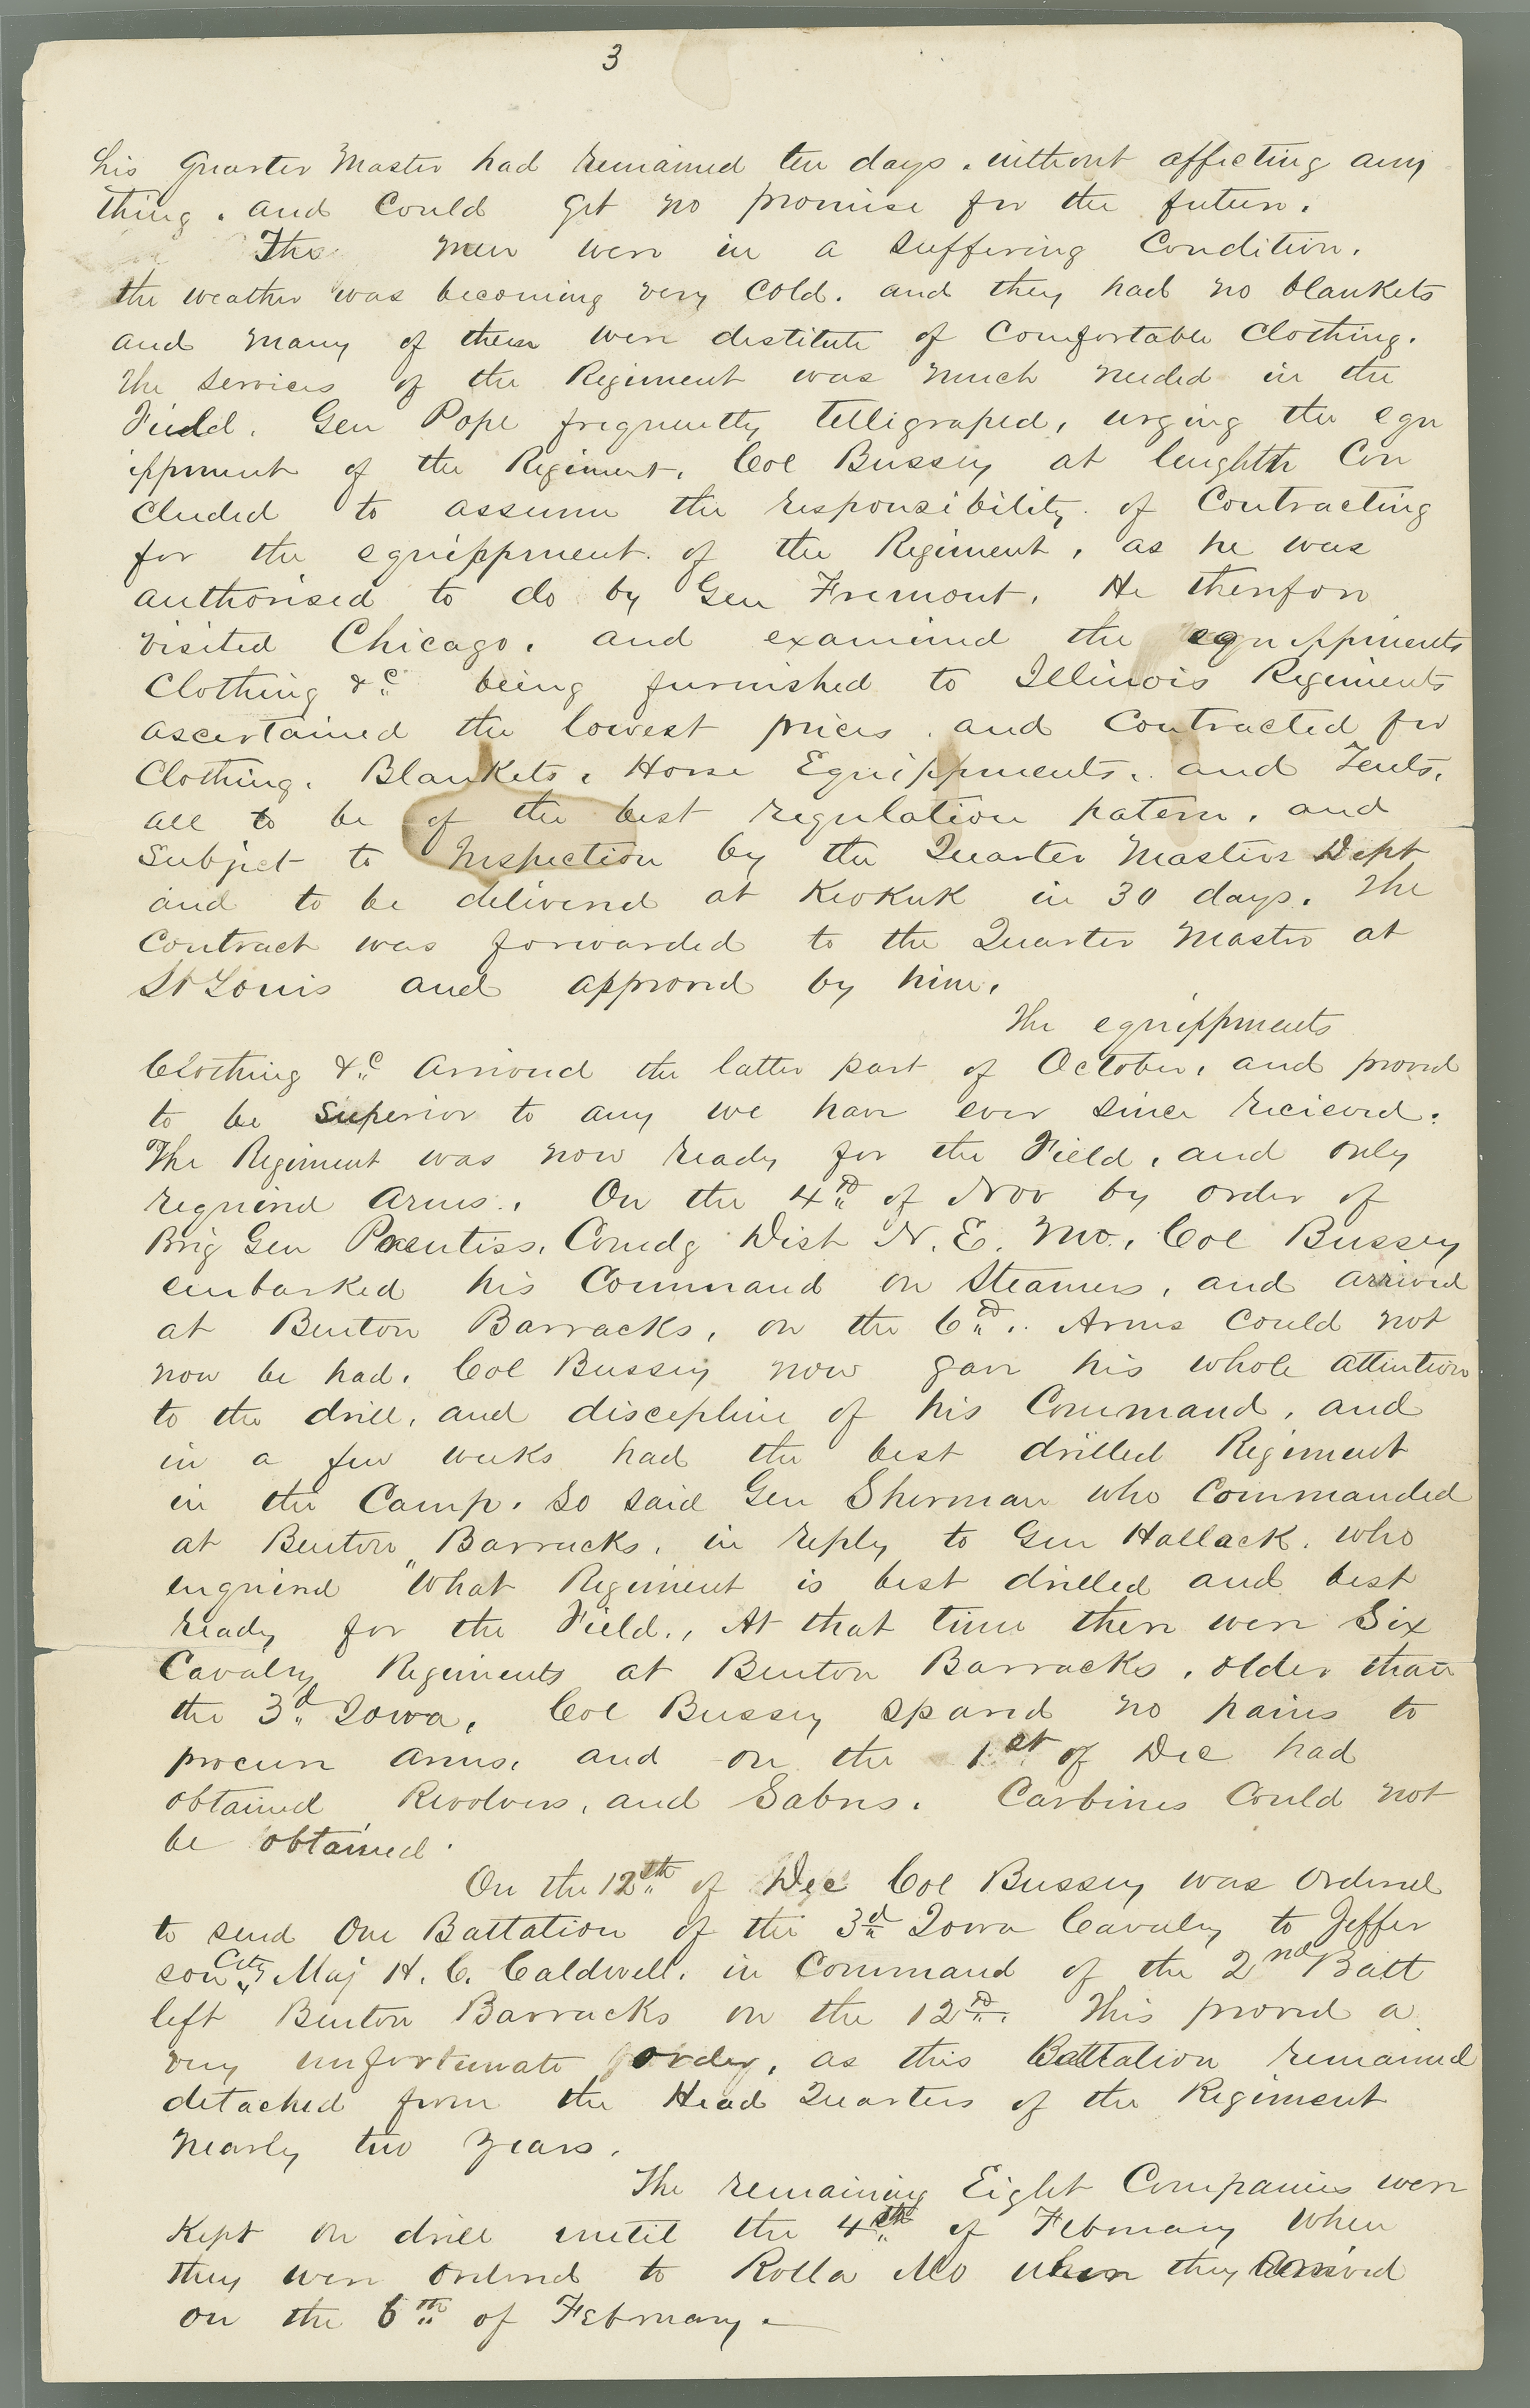 3
his Quarter Master had remained ten days. without affecting any
thing. and Could get no promise for the future.
The men were in a suffering Condition.
the weather was becoming very Cold. and they had no blankets
and many of them were destitute of Comfortable Clothing.
The services of the Regiment was much needed in the
Field. Gen Pope frequently telligraped, urging the equ
ippment of the Regiment. Col Bussey at lenghth Con
cluded to assume the responsibility of Contracting
for the equippment of the Regiment, as he was
authorised to do by Gen Fremont. He therefore
visited Chicago. and examined the equippments
Clothing &c being furnished to Illinois Regiments
ascertained the lowest prices. and Contracted for
Clothing. Blankets. Horse Equippments. and Tents.
all to be of the best regulation patern, and
Subject to Inspection by the Quarter Masters Dept
and to be delivered at Keokuk in 30 days. The
Contract was forwarded to the Quarter Master at
St Louis and approved by him.
The equippments
Clothing &c Arrived the latter part of October, and proved
to be superior to any we have ever since recieved.
The Regiment was now ready for the Field, and only
required Arms. On the 4th of Nov by order of
Brig Gen Prentiss. Comdg Dist N. E. Mo. Col Bussey
embarked his Command on Steamers, and arrived
at Benton Barracks, on the 6th. Arms Could not
now be had. Col Bussey now gave his whole attention
to the drill, and discepline of his Command, and
in a few weeks had the best drilled Regiment
in the Camp. So said Gen Sherman who Commanded
at Benton Barracks, in reply to Gen Hallack. who
enquired "What Regiment is best drilled and best
ready for the Field., At that time there were Six
Cavalry Regiments at Benton Barracks, older than
the 3d Iowa. Col Bussey spared no pains to
procure Arms. and on the 1st of Dec had
obtained Revolvers, and Sabres. Carbines Could not
be obtained.
On the 12th of Dec Col Bussey was Ordered
to send One Battation of the 3d Iowa Cavalry to Jeffer
son City Maj H. C. Caldwell. in Command of the 2nd Batt
left Benton Barracks on the 12th. This proved a
very unfortunate order, as this Battation remained
detached from the Head Quarters of the Regiment
Nearly two years.
The remaining Eight Companies were
Kept on drill until the 4th of February When
they were Ordered to Rolla Mo where they Arrived
on the 6th of February.